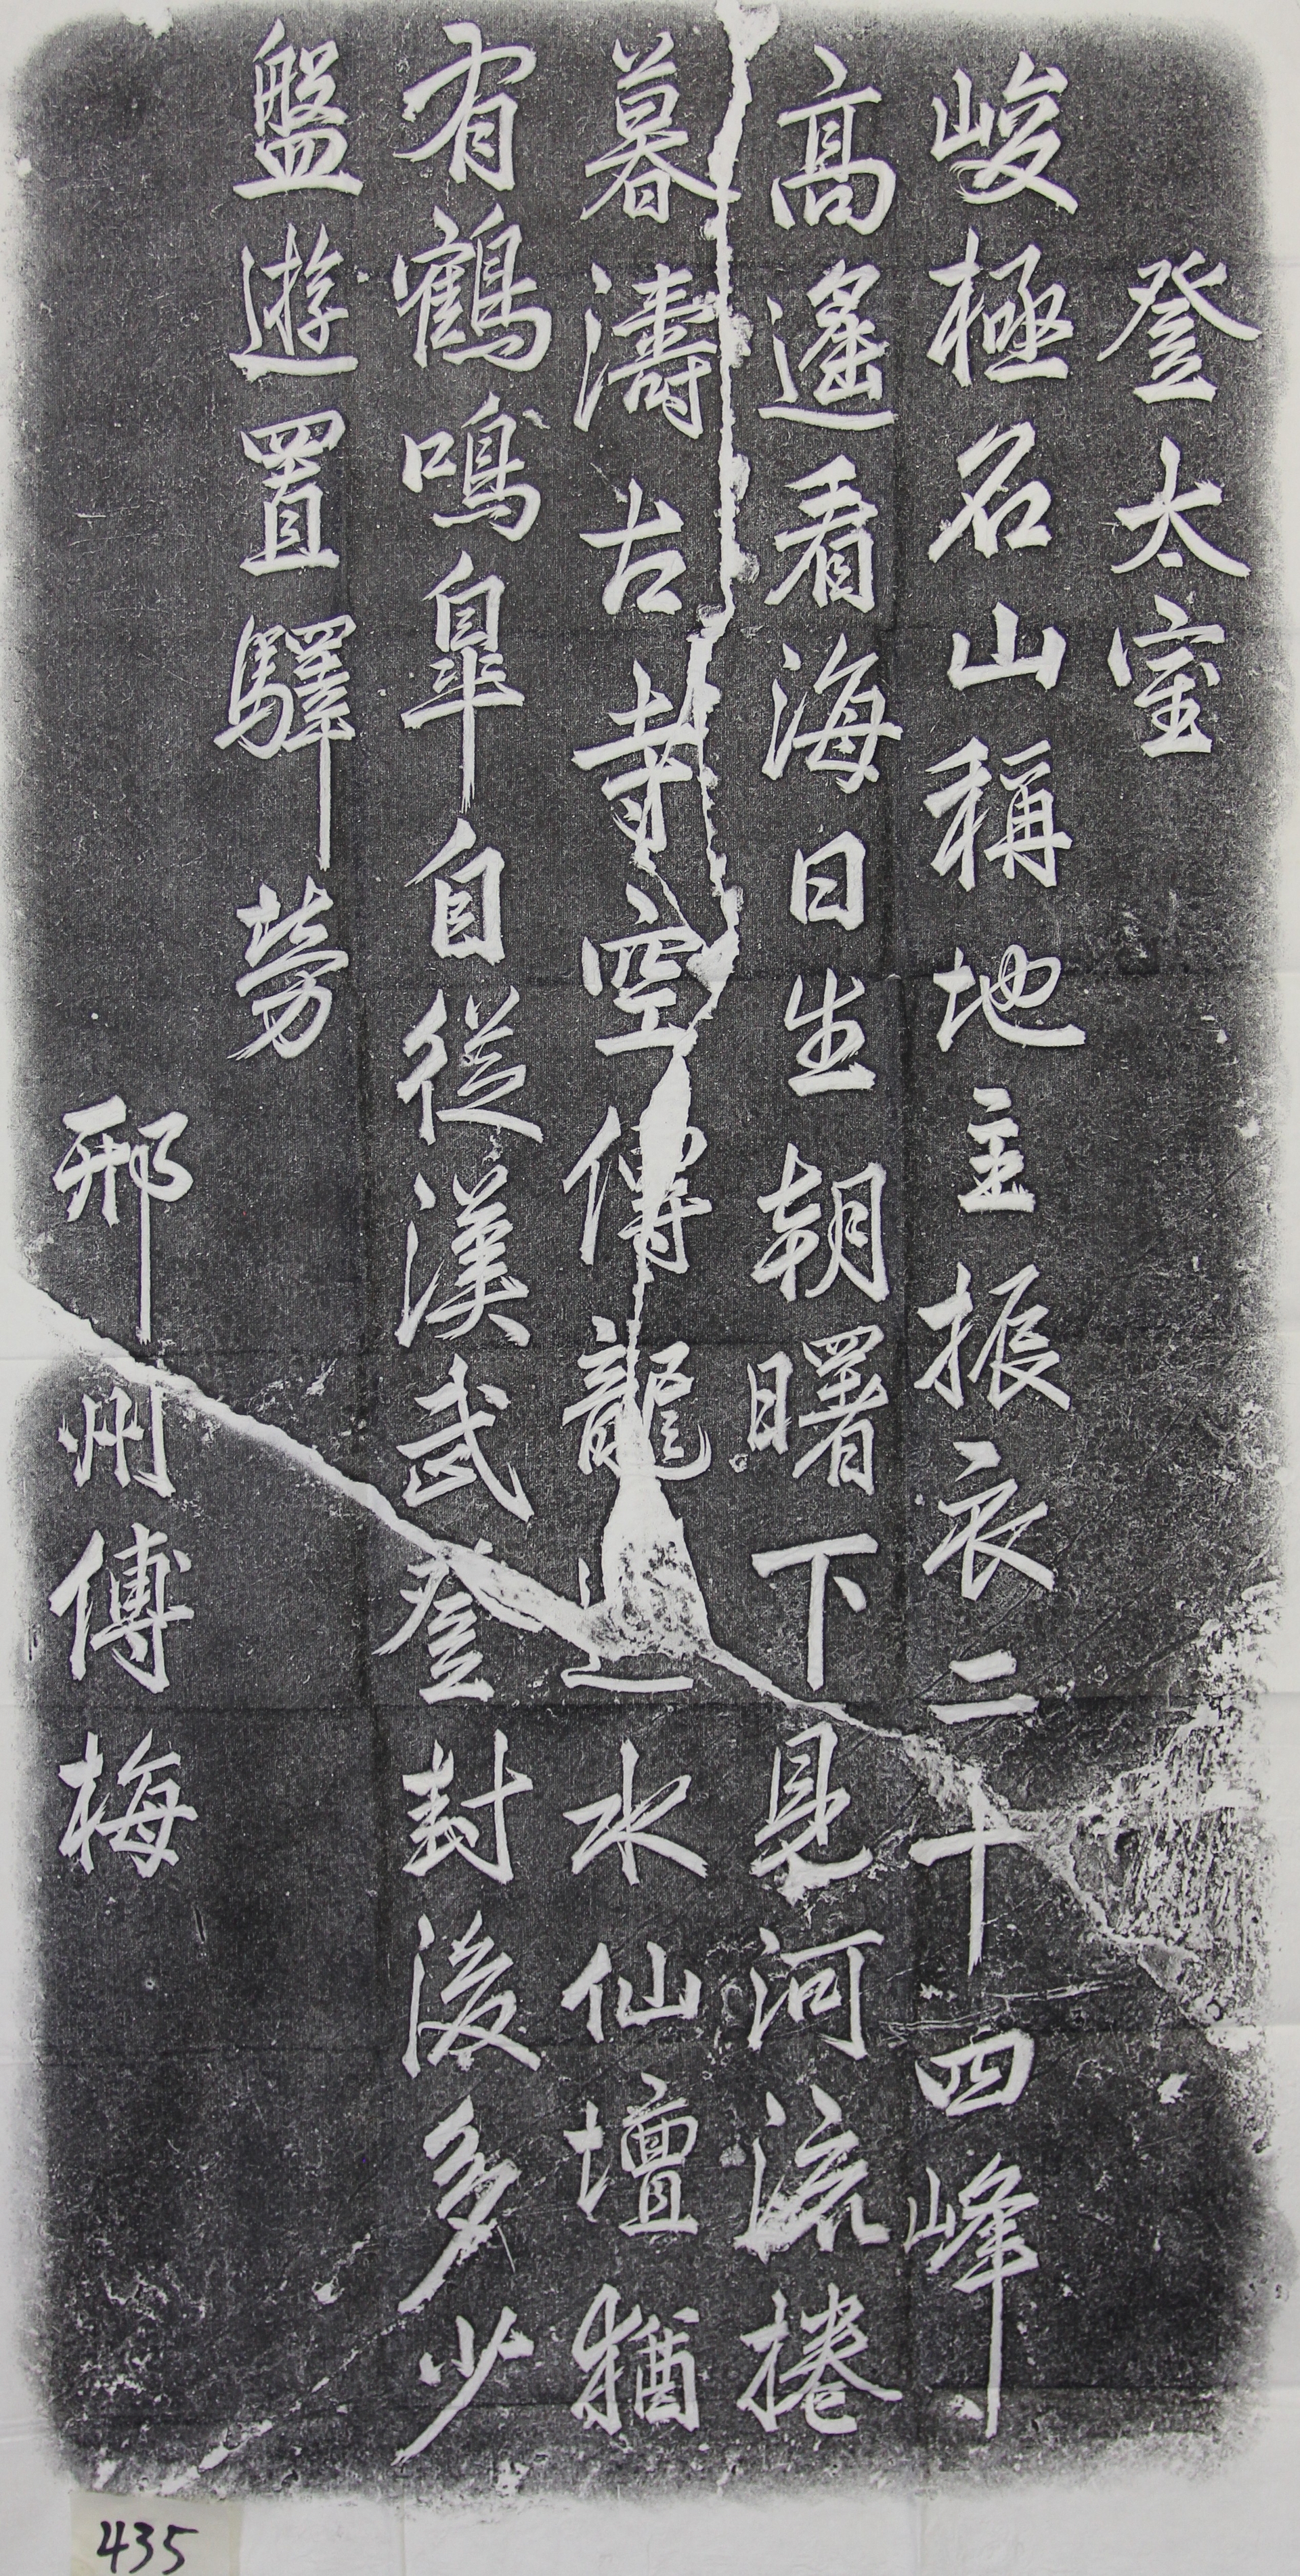 登太室
峻極名山稱地主振衣二十四峰
高遙看海日生朝曙下見河流捲
暮濤古寺空傳龍水仙壇猶
有鶴鳴皐自從漢武登封後多少
盤遊置驛勞
邢州傅梅
435